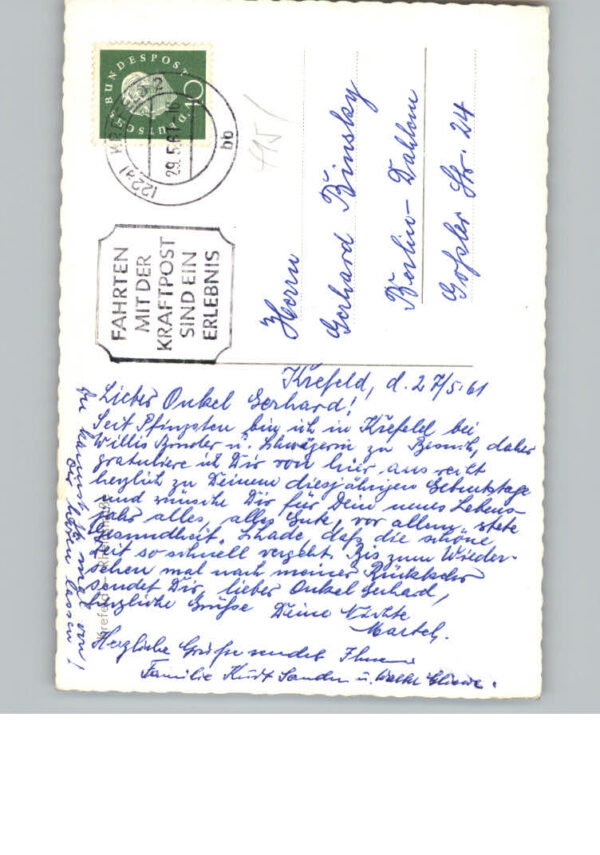 DEUTSCHE BUNDESPOST
(22a) KREFELD 2
29.5.61
bb
FAHRTEN
MIT DER
KRAFTPOST
SIND EIN
ERLEBNIS
Herrn
Gerhard Binsky
Berlin-Dahlem
Goßler Str. 24
Krefeld, d. 27/5.61
Lieber Onkel Gerhard!
Seit Pfingsten bin ich in Krefeld bei
Willis Bruder u. Schwägerin zu Besuch, daher
gratuliere ich Dir von hier aus recht
herzlich zu Deinem diesjährigen Geburtstage
und wünsche Dir für Dein neues Lebens-
jahr alles, alles Gute, vor allem stete
Gesundheit. Schade, daß die schöne
Zeit so schnell vergeht. Bis zum Wieder-
sehen mal nach meiner Rückkehr
sendet Dir, lieber Onkel Gerhad,
herzliche Grüße Deine Nichte
Martch.
Herzliche Grüße sendet Ihnen
Familie Kurt Sander u.